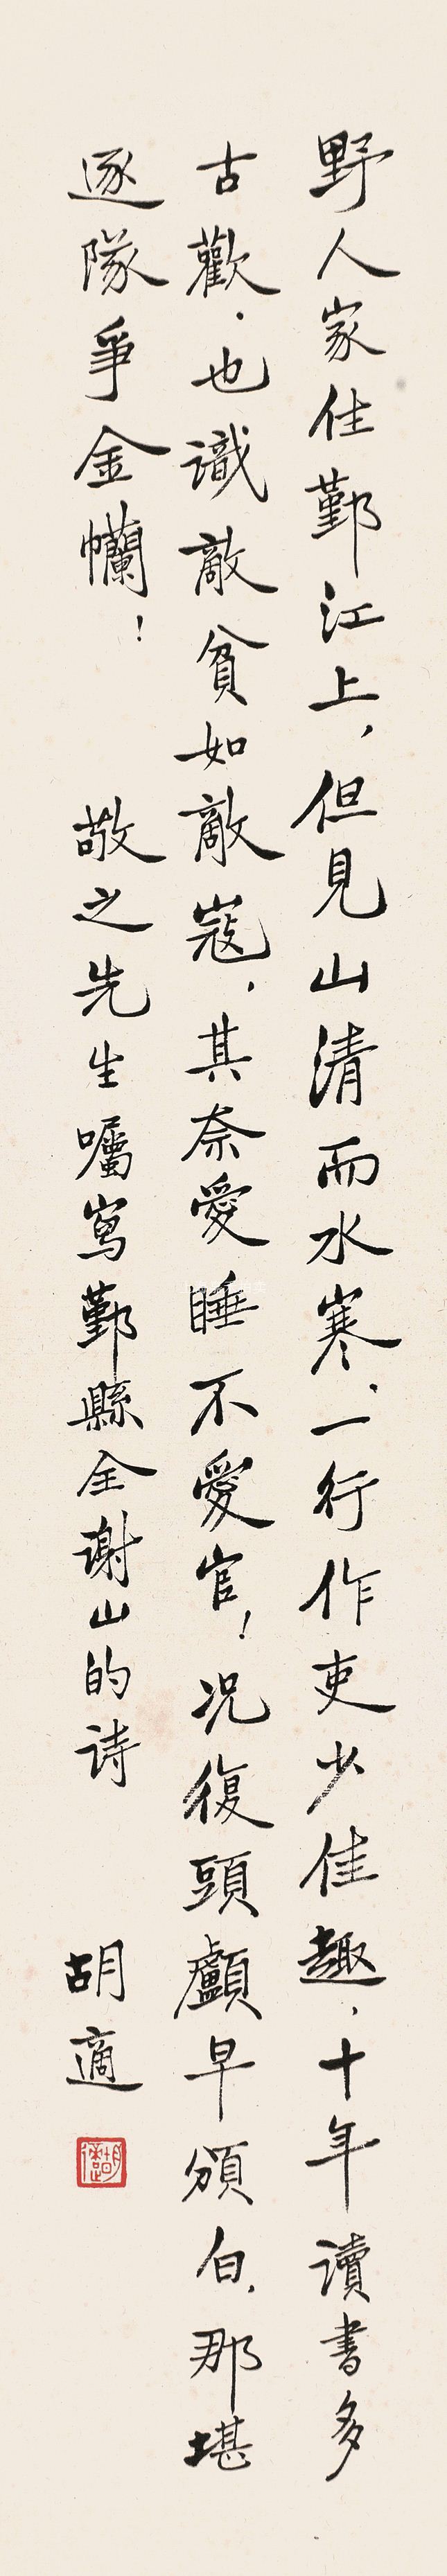 野人家住鄞江上，但見山清而水寒。一行作吏少佳趣，十年讀書多
古歡。也識敵貧如敵寇，其奈愛睡不愛官！况復頭顱早頒白，那堪
逐隊爭金幱！
敬之先生囑寫鄞縣全謝山的詩
胡適